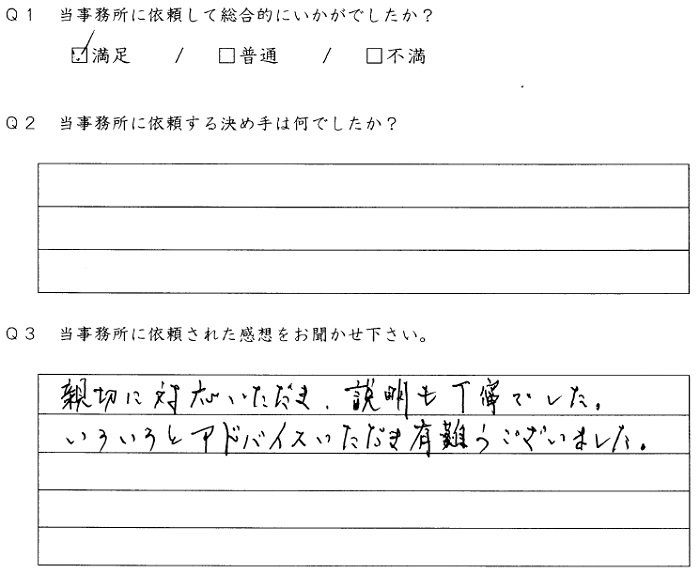 Q1 当事務所に依頼して総合的にいかがでしたか？
☑満足 / □普通 / □不満
Q2 当事務所に依頼する決め手は何でしたか？
Q3 当事務所に依頼された感想をお聞かせ下さい。
親切に対応いただき、説明も丁寧でした。
いろいろとアドバイスいただき有難うございました。